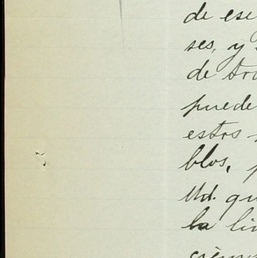 de ese
ses, y
de tra
puede
estos
blos,
Ud. qu
la li